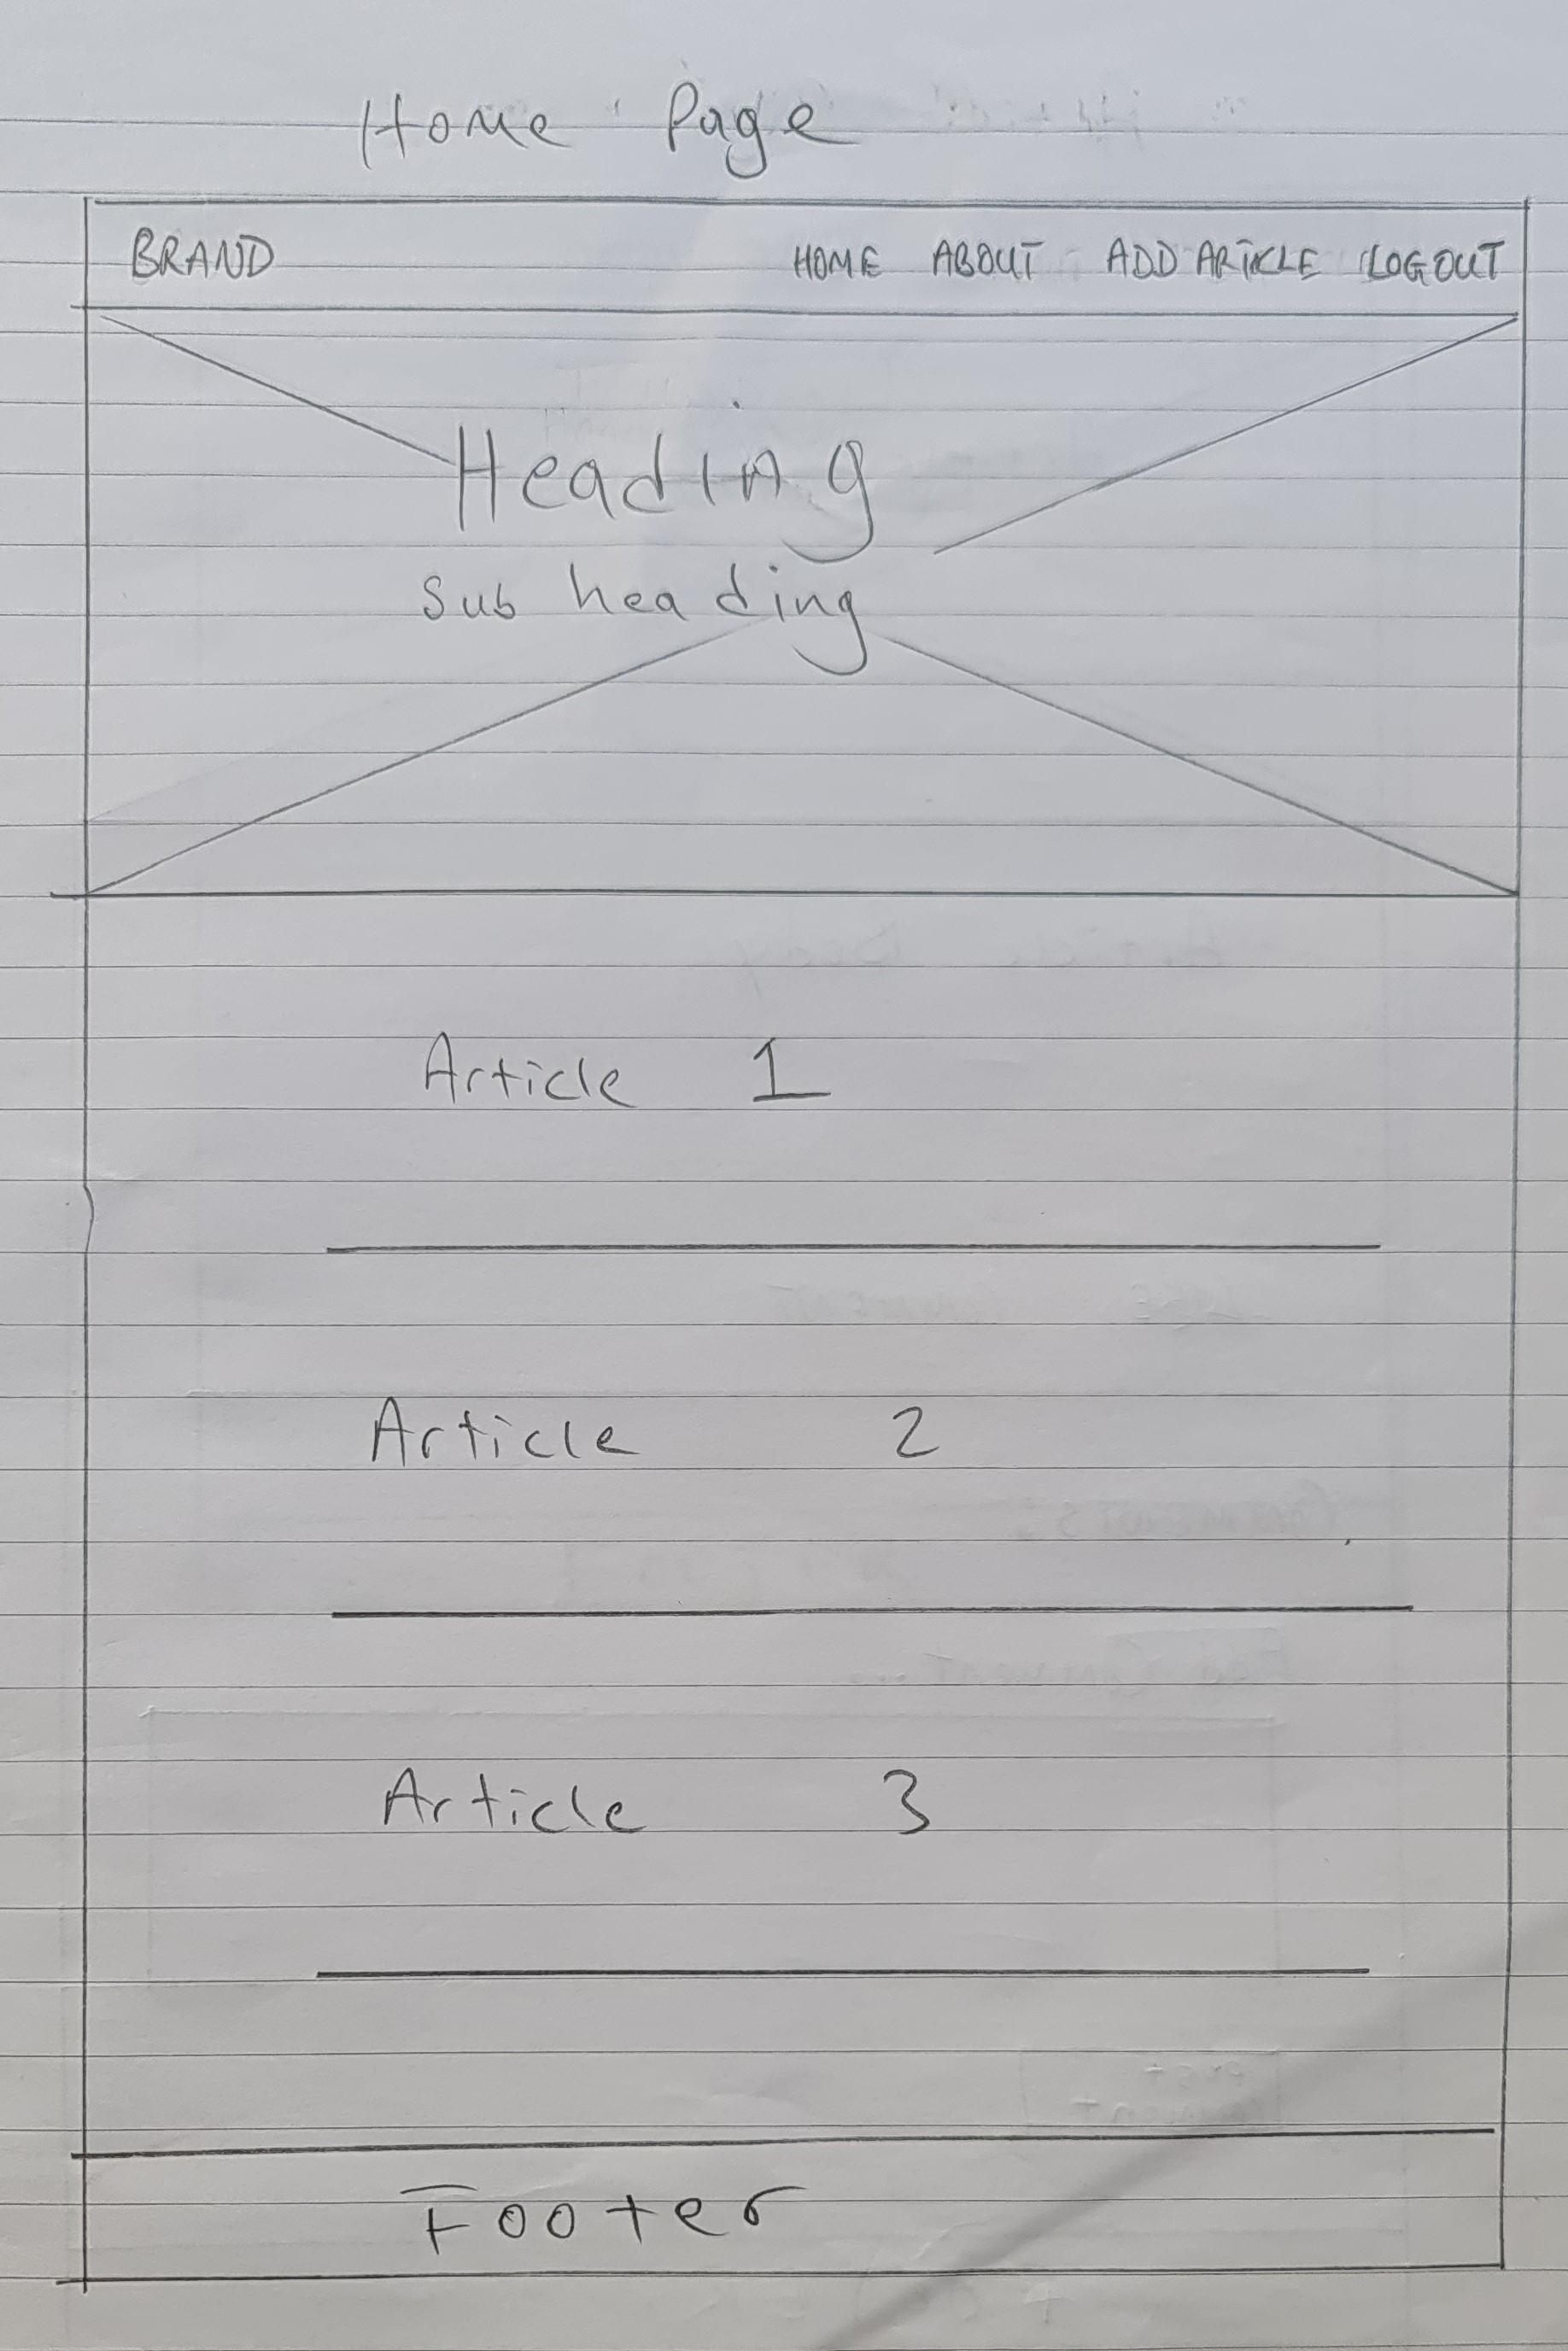 Home Page
BRAND HOME ABOUT ADD ARTICLE LOGOUT
Heading
Sub heading
Article 1
Article 2
Article 3
Footer